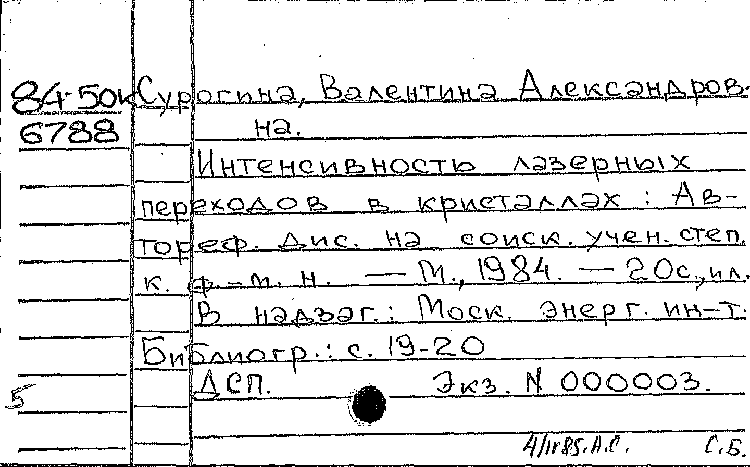 84-50к Сурогина, Валентина Александров-
6788 на.
Интенсивность лазерных
переходов в кристаллах : Ав-
тореф. дис. на соиск. учен. степ.
к. ф.-м. н. — М., 1984. — 20с., ил.
В надзаг.: Моск. энерг. ин-т.
Библиогр.: с. 19-20
ДСП. Экз. N 000003.
5
С.Б.